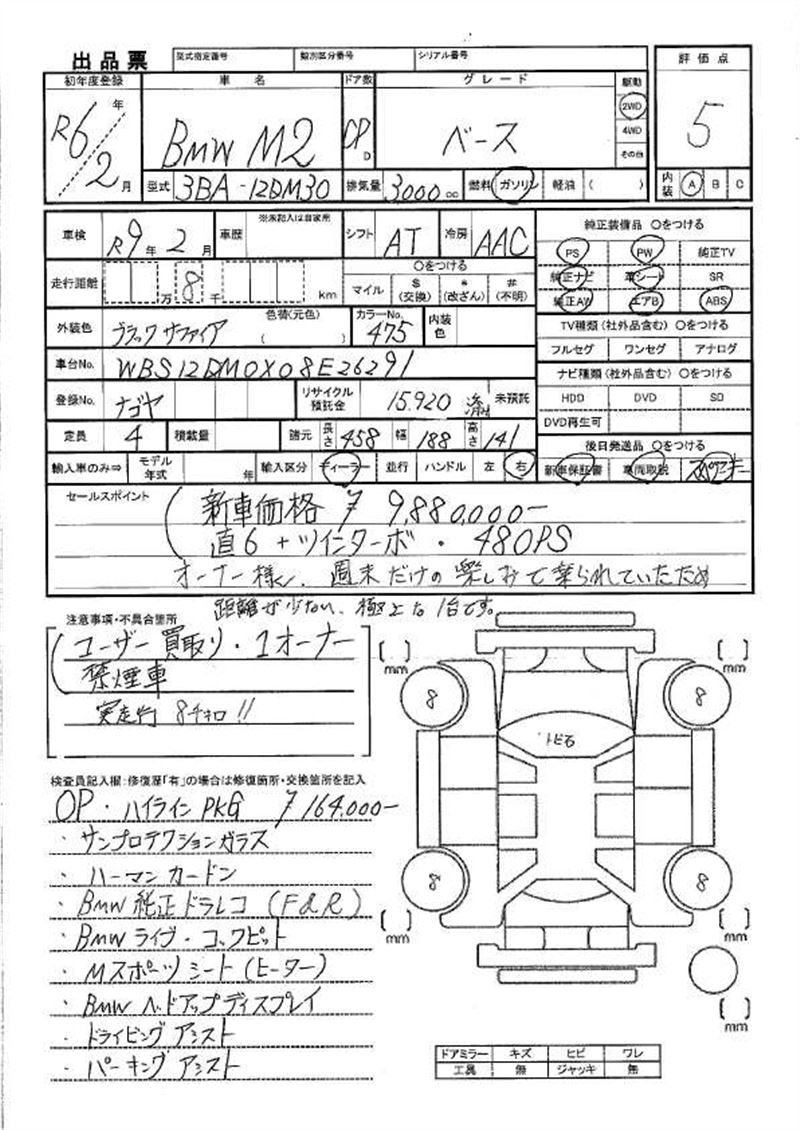 出品票 型式指定番号 類別区分番号 シリアル番号
初年度登録 車名 ドア数 グレード 駆動 評価点
R6年 2月 BMW M2 CP D ベース 2WD 4WD その他 5
型式 3BA-12DM30 排気量 3000 cc 燃料 ガソリン 軽油 ( ) 内装 A B C
車検 R9年 2月 車歴 ※未記入は自家用 シフト AT 冷房 AAC 純正装備品 ○をつける
PS PW 純正TV
走行距離 万 8 千 km ○をつける 純正ナビ 革シート SR
マイル $(交換) *(改ざん) #(不明) 純正AW エアB ABS
外装色 ブラックサファイア 色替(元色) ( カラーNo. 475 内装色 TV種類(社外品含む) ○をつける
フルセグ ワンセグ アナログ
車台No. WBS12DM0X08E26291 ナビ種類(社外品含む) ○をつける
登録No. ナゴヤ リサイクル預託金 15.920 済 未預託 HDD DVD SD
DVD再生可
定員 4 積載量 諸元 長さ 458 幅 188 高さ 141 後日発送品 ○をつける
輸入車のみ⇒ モデル年式 年 輸入区分 ディーラー 並行 ハンドル 左 右 新車保証書 車両取説 スペアキー
セールスポイント
新車価格 ¥ 9,880,000-
直6 + ツインターボ・480PS
オーナー様、週末だけの楽しみで乗られていたため
距離が少ない、極上な1台です。
注意事項・不具合箇所
ユーザー買取り・1オーナー
禁煙車
実走行 8千キロ!!
[ ] mm
[ ] mm
8
8
トビ石
検査員記入欄:修復歴「有」の場合は修復箇所・交換箇所を記入
OP・ハイラインPKG ¥164,000-
・サンプロテクションガラス
・ハーマンカードン
・BMW純正ドラレコ(F&R)
・BMWライヴ・コックピット
・Mスポーツシート(ヒーター)
・BMWヘッドアップディスプレイ
・ドライビングアシスト
・パーキングアシスト
8
8
[ ] mm
[ ] mm
[ ] mm
ドアミラー キズ ヒビ ワレ
工具 無 ジャッキ 無